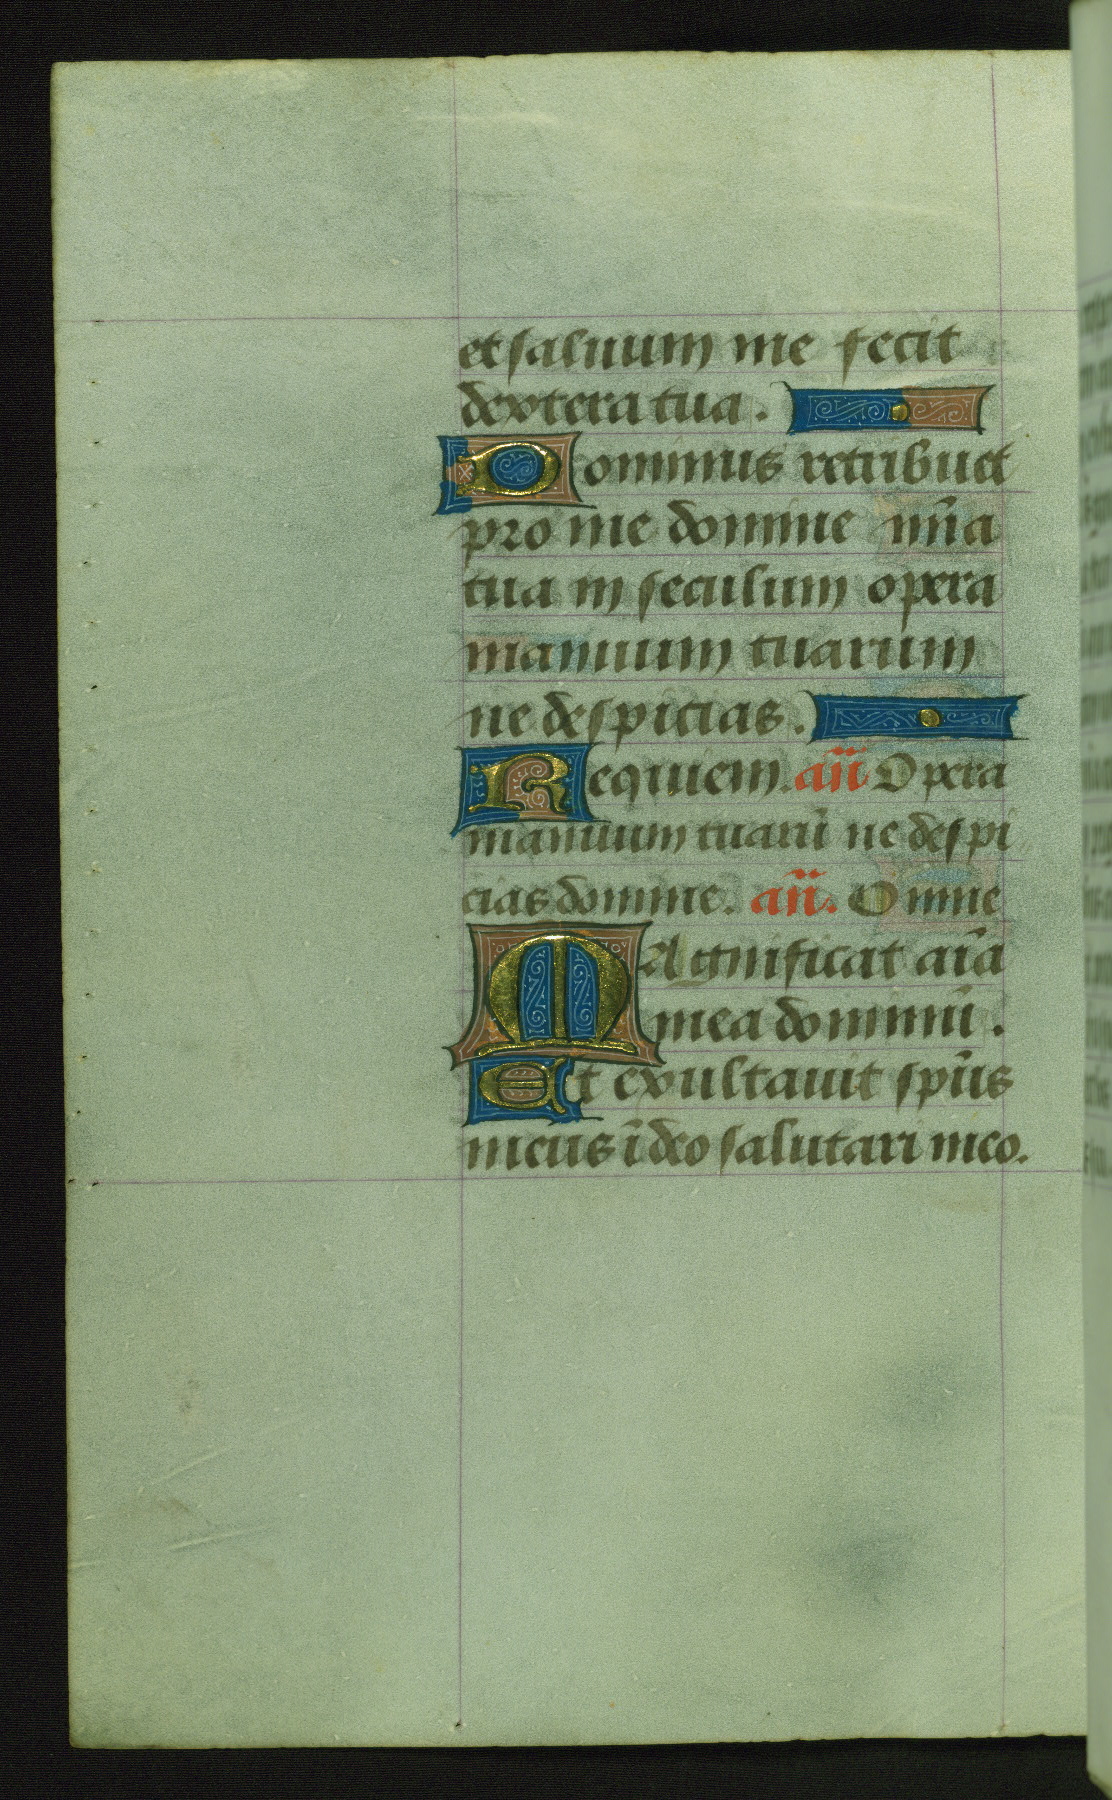 et saluum me fecit
dextera tua.
Dominus retribuet
pro me domine mīa
tua in seculum opera
manuum tuarum
ne despicias.
Requiem. añ Opera
manuum tuarū ne despi
cias domine. añ. Omne
MAgnificat aīa
mea dominū.
Et exultauit spūs
meus ī deo salutari meo.